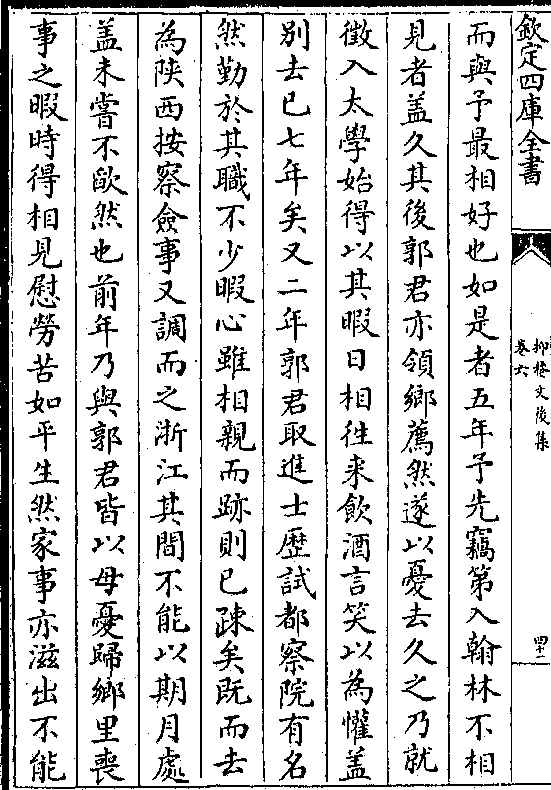 欽定四庫全書
抑菴文後集
卷六
四十一
而與予最相好也如是者五年予先竊第入翰林不相
見者盖久其後郭君亦領鄉薦然遂以憂去久之乃就
徴入太學始得以其暇日相徃來飲酒言笑以為懽盖
别去已七年矣又二年郭君取進士歴試都察院有名
然勤於其職不少暇心雖相親而跡則已疎矣既而去
為陜西按察僉事又調而之浙江其間不能以期月處
盖未嘗不歐然也前年乃與郭君皆以母憂歸鄉里喪
事之暇時得相見慰勞苦如平生然家事亦滋出不能